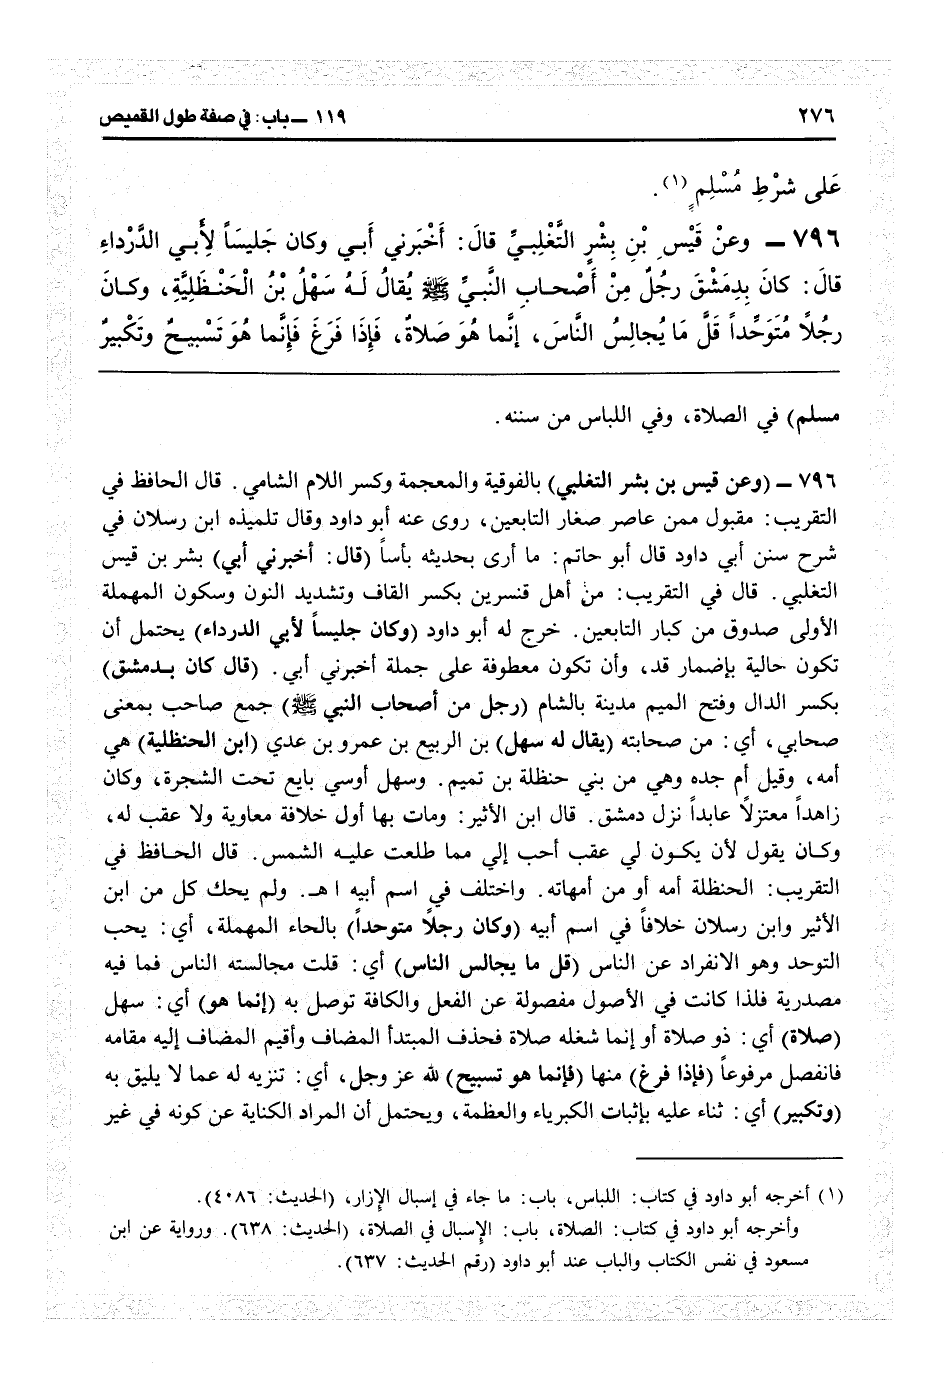 ٢٧٦ ١١٩ ــ باب: في صفة طول القميص
عَلى شَرْطِ مُسْلِمٍ (١).
٧٩٦ ــ وعنْ قَيْسِ بْنِ بِشْرٍ التَّغْلِبيِّ قالَ: أَخْبَرني أَبي وكان جَليسَاً لِأَبي الدَّرْداءِ
قالَ: كانَ بِدِمَشْقَ رجُلٌ مِنْ أَصْحابِ النَّبيِّ ﷺ يُقالُ لَهُ سَهْلُ بْنُ الْحَنْظَلِيَّةِ، وكَـانَ
رجُلاً مُتَوَحِّداً قَلَّ مَا يُجالِسُ النَّاسَ، إنَّما هُوَ صَلاةٌ، فَإِذَا فَرَغَ فَإِنَّما هُوَ تَسْبيحٌ وتَكْبيرٌ
مسلم) في الصلاة، وفي اللباس من سننه.
٧٩٦ ــ (وعن قيس بن بشر التغلبي) بالفوقية والمعجمة وكسر اللام الشامي. قال الحافظ في
التقريب: مقبول ممن عاصر صغار التابعين، روى عنه أبو داود وقال تلميذه ابن رسلان في
شرح سنن أبي داود قال أبو حاتم: ما أرى بحديثه بأساً (قال: أخبرني أبي) بشر بن قيس
التغلبي. قال في التقريب: من أهل قنسرين بكسر القاف وتشديد النون وسكون المهملة
الأولى صدوق من كبار التابعين. خرج له أبو داود (وكان جليساً لأبي الدرداء) يحتمل أن
تكون حالية بإضمار قد، وأن تكون معطوفة على جملة أخبرني أبي. (قال كان بـدمشق)
بكسر الدال وفتح الميم مدينة بالشام (رجل من أصحاب النبي ﷺ) جمع صاحب بمعنى
صحابي، أي: من صحابته (يقال له سهل) بن الربيع بن عمرو بن عدي (ابن الحنظلية) هي
أمه، وقيل أم جده وهي من بني حنظلة بن تميم. وسهل أوسي بايع تحت الشجرة، وكان
زاهداً معتزلاً عابداً نزل دمشق. قال ابن الأثير: ومات بها أول خلافة معاوية ولا عقب له،
وكـان يقول لأن يكـون لي عقب أحب إلي مما طلعت عليـه الشمس. قال الحـافظ في
التقريب: الحنظلة أمه أو من أمهاته. واختلف في اسم أبيه ا هـ. ولم يحك كل من ابن
الأثير وابن رسلان خلافاً في اسم أبيه (وكان رجلاً متوحداً) بالحاء المهملة، أي: يحب
التوحد وهو الانفراد عن الناس (قل ما يجالس الناس) أي: قلت مجالسته الناس فما فيه
مصدرية فلذا كانت في الأصول مفصولة عن الفعل والكافة توصل به (إنما هو) أي: سهل
(صلاة) أي: ذو صلاة أو إنما شغله صلاة فحذف المبتدأ المضاف وأقيم المضاف إليه مقامه
فانفصل مرفوعاً (فإذا فرغ) منها (فإنما هو تسبيح) لله عز وجل، أي: تنزيه له عما لا يليق به
(وتكبير) أي: ثناء عليه بإثبات الكبرياء والعظمة، ويحتمل أن المراد الكناية عن كونه في غير
(١) أخرجه أبو داود في كتاب: اللباس، باب: ما جاء في إسبال الإزار، (الحديث: ٤٠٨٦).
وأخرجه أبو داود في كتاب: الصلاة، باب: الإسبال في الصلاة، (الحديث: ٦٣٨). ورواية عن ابن
مسعود في نفس الكتاب والباب عند أبو داود (رقم الحديث: ٦٣٧).